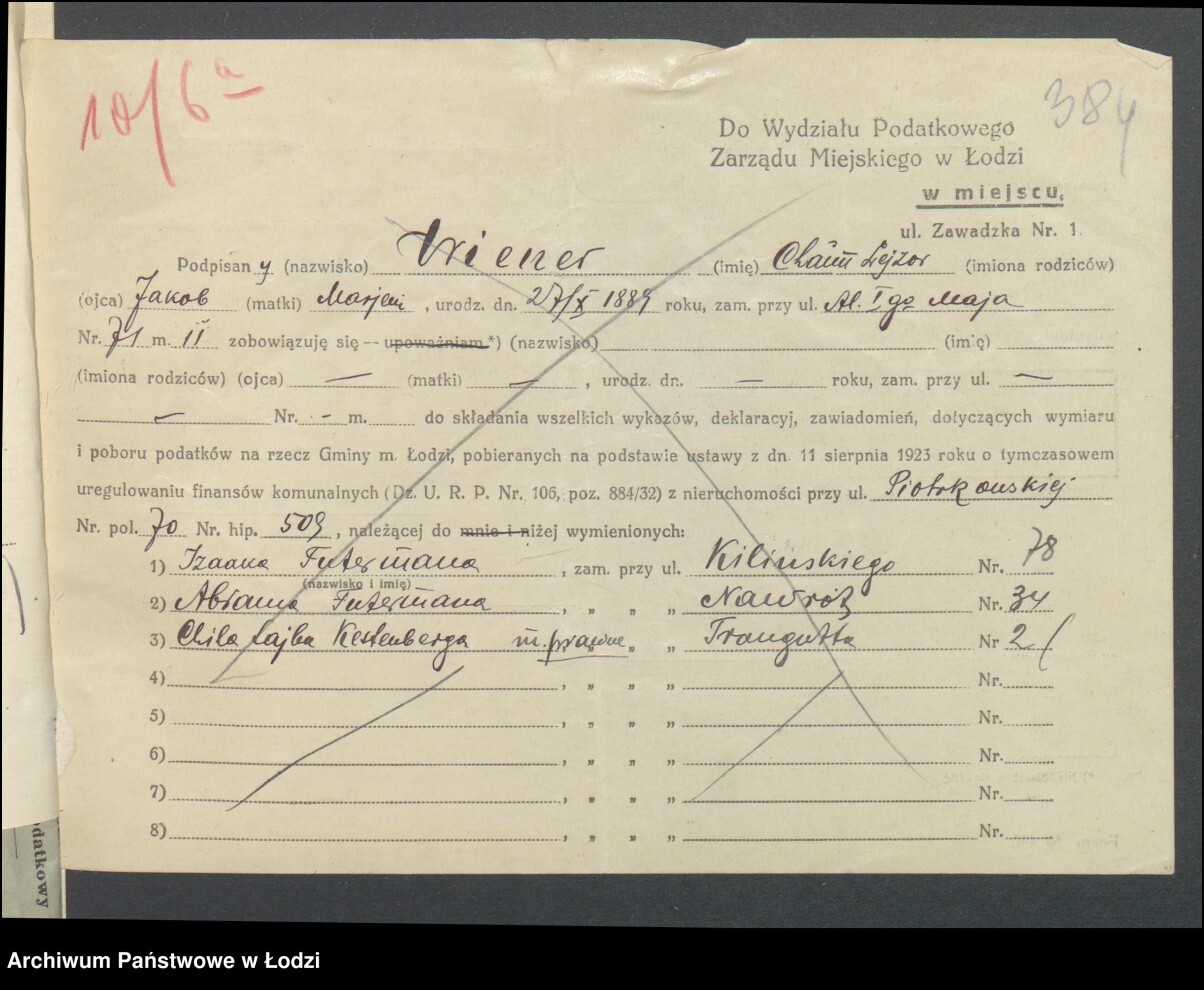 10/6a
384
Do Wydziału Podatkowego
Zarządu Miejskiego w Łodzi
w miejscu,
ul. Zawadzka Nr. 1.
Podpisany (nazwisko) Wiener (imię) Chaim Lejzor (imiona rodziców)
(ojca) Jakob (matki) Marjem, urodz. dn. 27/X 1889 roku, zam. przy ul. Al. Igo Maja
Nr. 71 m. II zobowiązuję się — upoważniam *) (nazwisko) (imię)
(imiona rodziców) (ojca) — (matki) —, urodz. dn. — roku, zam. przy ul. —
— Nr. - m. do składania wszelkich wykazów, deklaracyj, zawiadomień, dotyczących wymiaru
i poboru podatków na rzecz Gminy m. Łodzi, pobieranych na podstawie ustawy z dn. 11 sierpnia 1923 roku o tymczasowem
uregulowaniu finansów komunalnych (Dz. U. R. P. Nr. 106, poz. 884/32) z nieruchomości przy ul. Piotrkowskiej
Nr. pol. 70 Nr. hip. 509, należącej do mnie i niżej wymienionych:
1) Izaaka Futermana, zam. przy ul. Kilińskiego Nr. 78
(nazwisko i imię)
2) Abrama Futermana, „ „ „ Nawrót Nr. 34
3) Chila Lajba Kestenberga m. prawne „ „ Traugutta Nr 2
4) , „ „ „ Nr.
5) , „ „ „ Nr.
6) , „ „ „ Nr.
7) , „ „ „ Nr.
8) , „ „ „ Nr.
odatkowy
Archiwum Państwowe w Łodzi